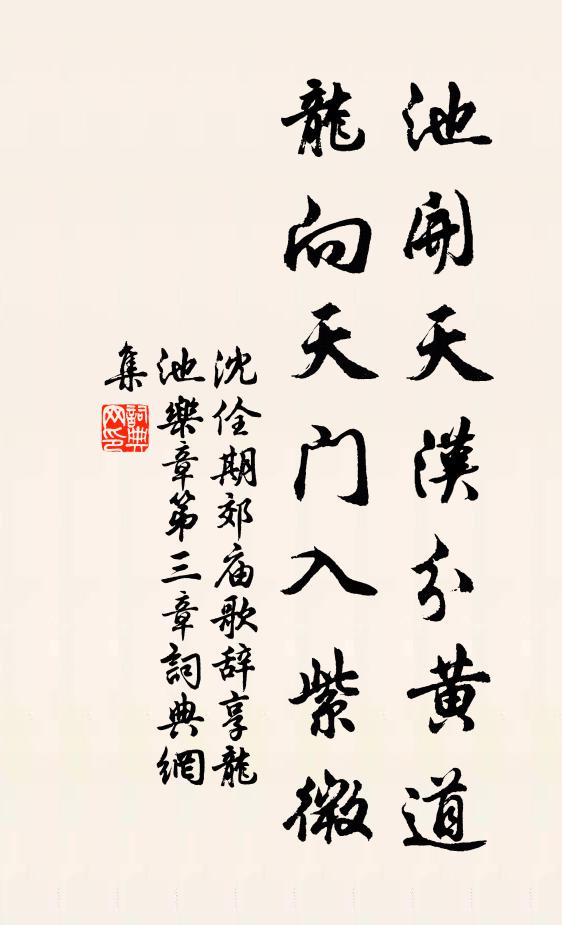 池開天漢分黃道
龍向天门入紫微
沈佺期郊庙歌辞享龍
池樂章第三章詞典網
集
詞典
网印